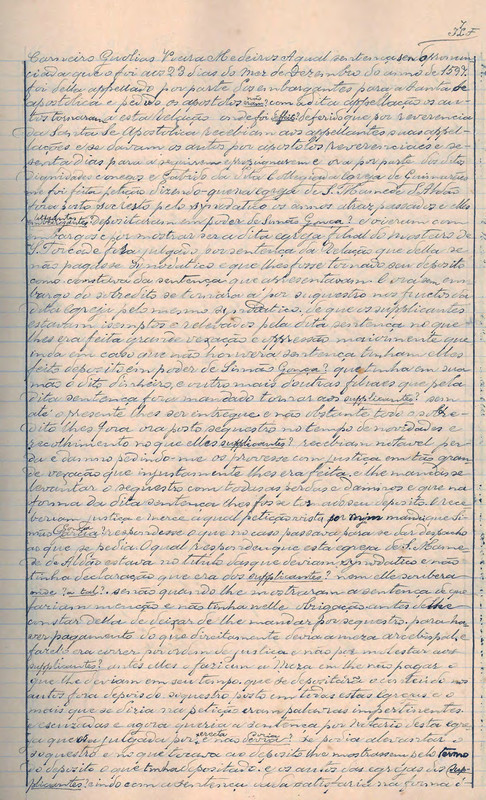 Carneiro Quolias Vieira Medeiros A qual sentença sendo pronun
ciada que o foi aos 23 dias do mez de Dezembro do anno de 1597
foi della appellado por parte dos embargantes para a banda
apostolica e pedido os apostolos com a dita appellação os au
tos tornaram a esta Relação onde foi deferido que por reverencia
da Santa Sé Apostolica recebiam aos appellantes suas appel
lações e se davam os autos por apostolos reverenciaes e se
senta dias para a seguirem e proseguirem e ora por parte dos ditos
Dignidades conegos e Cabido da Collegiada Igreja de Guimarães
me foi feita petição dizendo que na egreja de S. Mamede d'Aldão
fora posto sequestro pelo synodatico os annos atraz passados e elles
depositaram em poder de Simão Gonça? e vieram com
embargos e por mostrar ser a dita egreja filial do mosteiro de
S. Torcade fora julgado por sentença da Relação que della se
não pagasse synodatico e que lhes fosse tornado seu deposito
como constava da sentença que apresentavam e ora sem em
bargo do sobredito se tornara a por sequestro nos fructos da
dita Egreja pelo mesmo synodatico, de que os supplicantes
estavam isemptos e relevados pela dita sentença no que
lhes era feita grande vexação e oppressão maiormente que
inda em caso que não houvera sentença tinham elles
feito deposito em poder de Simão Gonça? que tinha em sua
mão o dito dinheiro, e outro mais doutras filiaes que pela
dita sentença fora mandado tornar aos supplicantes? sem
até o presente lhes ser entregue e não obstante todo o sobre
dito lhes fora ora posto sequestro no tempo de novidades e
recolhimento no que elles supplicantes? recebiam notavel per
da e damno pedindo-me os provesse com justiça em tão gran
de vexação que injustamente lhes era feita, e lhe mandasse
levantar o sequestro com todas as perdas e damnos e que na
forma da dita sentença lhes fosse tornado seu deposito e rece
beriam justiça e merce a qual petição vista por mim mandei que Si
mão respondesse o que no caso passava para se dar despacho
ao que se pedia. O qual respondeu que esta egreja de S. Mame
de de Aldão estava no titulo das que deviam synodatico e não
tinha declaração que era dos supplicantes? nem elle soubera
senão quando lhe mostraram a sentença de que
faziam menção e não tinha nelle obrigação antes de lhe
constar della de deixar de lhe mandar por sequestro, para ha
ver pagamento do que direitamente devia a meza arcebispal e
fazel-o ora correr por ordem de justiça e não por molestar aos
supplicantes? antes elles o faziam a Meza em lhe não pagar o
que lhe deviam em seu tempo, que se depositára o contendo nos
autos fora depois do sequestro posto em todas estas egrejas e o
mais que se diria na petição eram palavras impertinentes
e escusadas e agora queria a sentença por notario desta egre
ja que julgada por e não devia? se podia alevantar o
sequestro, e no que tocava ao deposito lhe mostrassem pelo termo
do deposito o que tinha depositado, e os autos das egrejas dos Sup-
plicantes? e indo com a sentença dada satisfaria na forma d